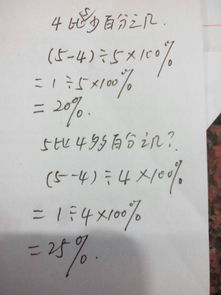 4比5少百分之几.
(5-4)÷5×100%
=1÷5×100%
=20%.
5比4多百分之几?
(5-4)÷4×100%
=1÷4×100%
=25%.